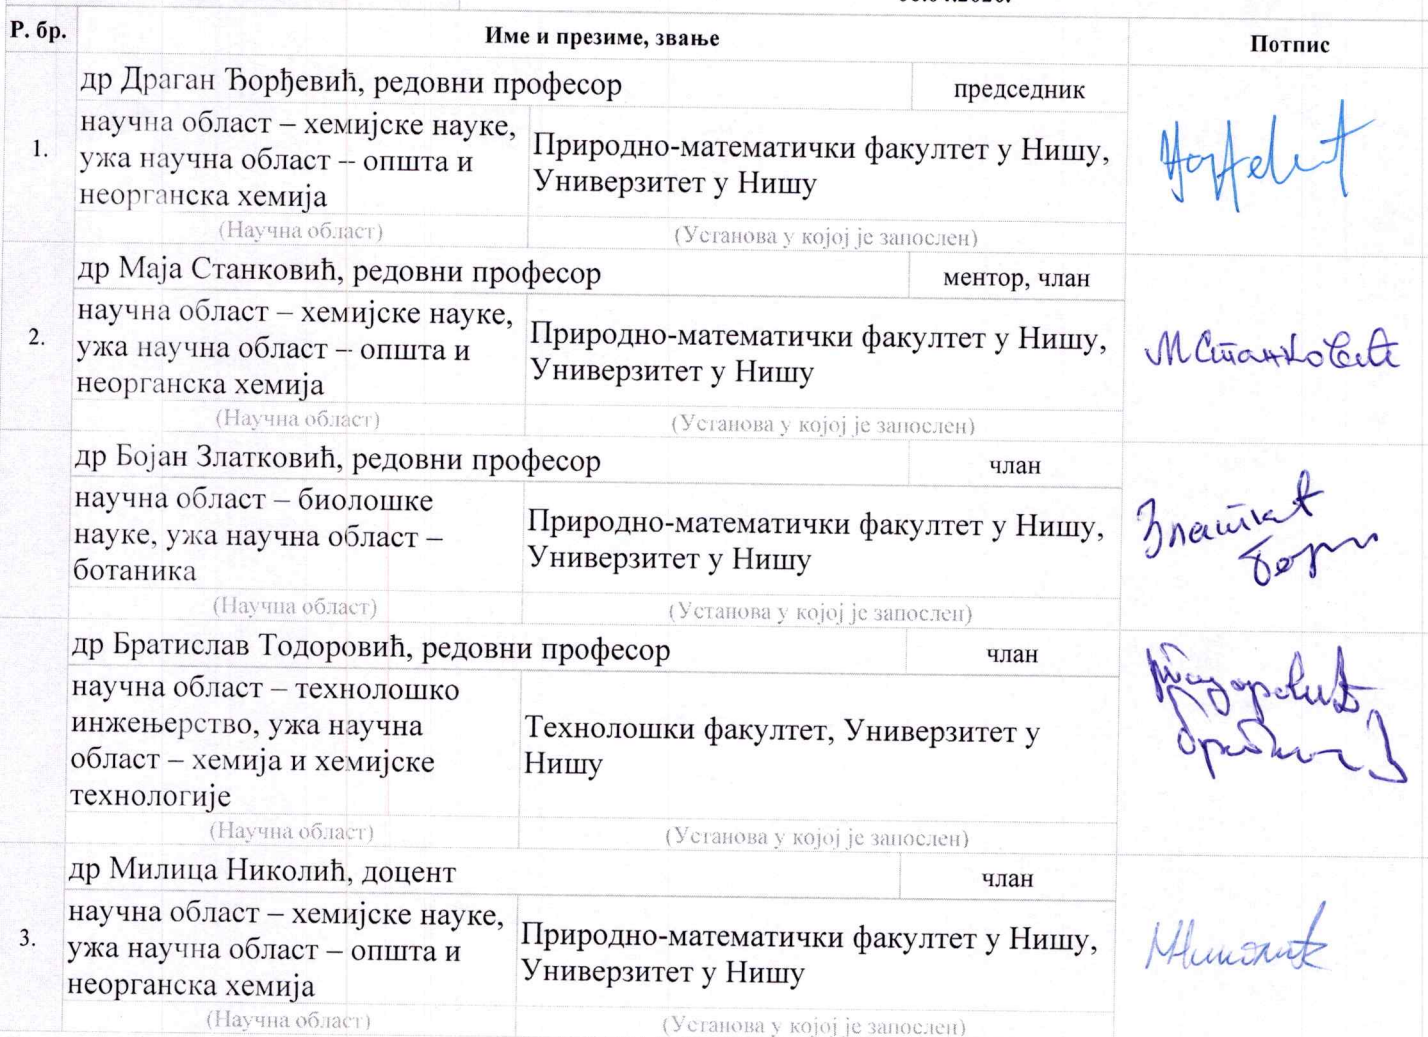 Р. бр.
Име и презиме, звање
Потпис
др Драган Ђорђевић, редовни професор
председник
1.
научна област – хемијске науке,
ужа научна област – општа и
неорганска хемија
Природно-математички факултет у Нишу,
Универзитет у Нишу
(Научна област)
(Установа у којој је запослен)
др Маја Станковић, редовни професор
ментор, члан
2.
научна област – хемијске науке,
ужа научна област – општа и
неорганска хемија
Природно-математички факултет у Нишу,
Универзитет у Нишу
МСтанковић
(Научна област)
(Установа у којој је запослен)
др Бојан Златковић, редовни професор
члан
научна област – биолошке
науке, ужа научна област –
ботаника
Природно-математички факултет у Нишу,
Универзитет у Нишу
(Научна област)
(Установа у којој је запослен)
др Братислав Тодоровић, редовни професор
члан
научна област – технолошко
инжењерство, ужа научна
област – хемија и хемијске
технологије
Технолошки факултет, Универзитет у
Нишу
Тодоровић
(Научна област)
(Установа у којој је запослен)
др Милица Николић, доцент
члан
3.
научна област – хемијске науке,
ужа научна област – општа и
неорганска хемија
Природно-математички факултет у Нишу,
Универзитет у Нишу
МНиколић
(Научна област)
(Установа у којој је запослен)